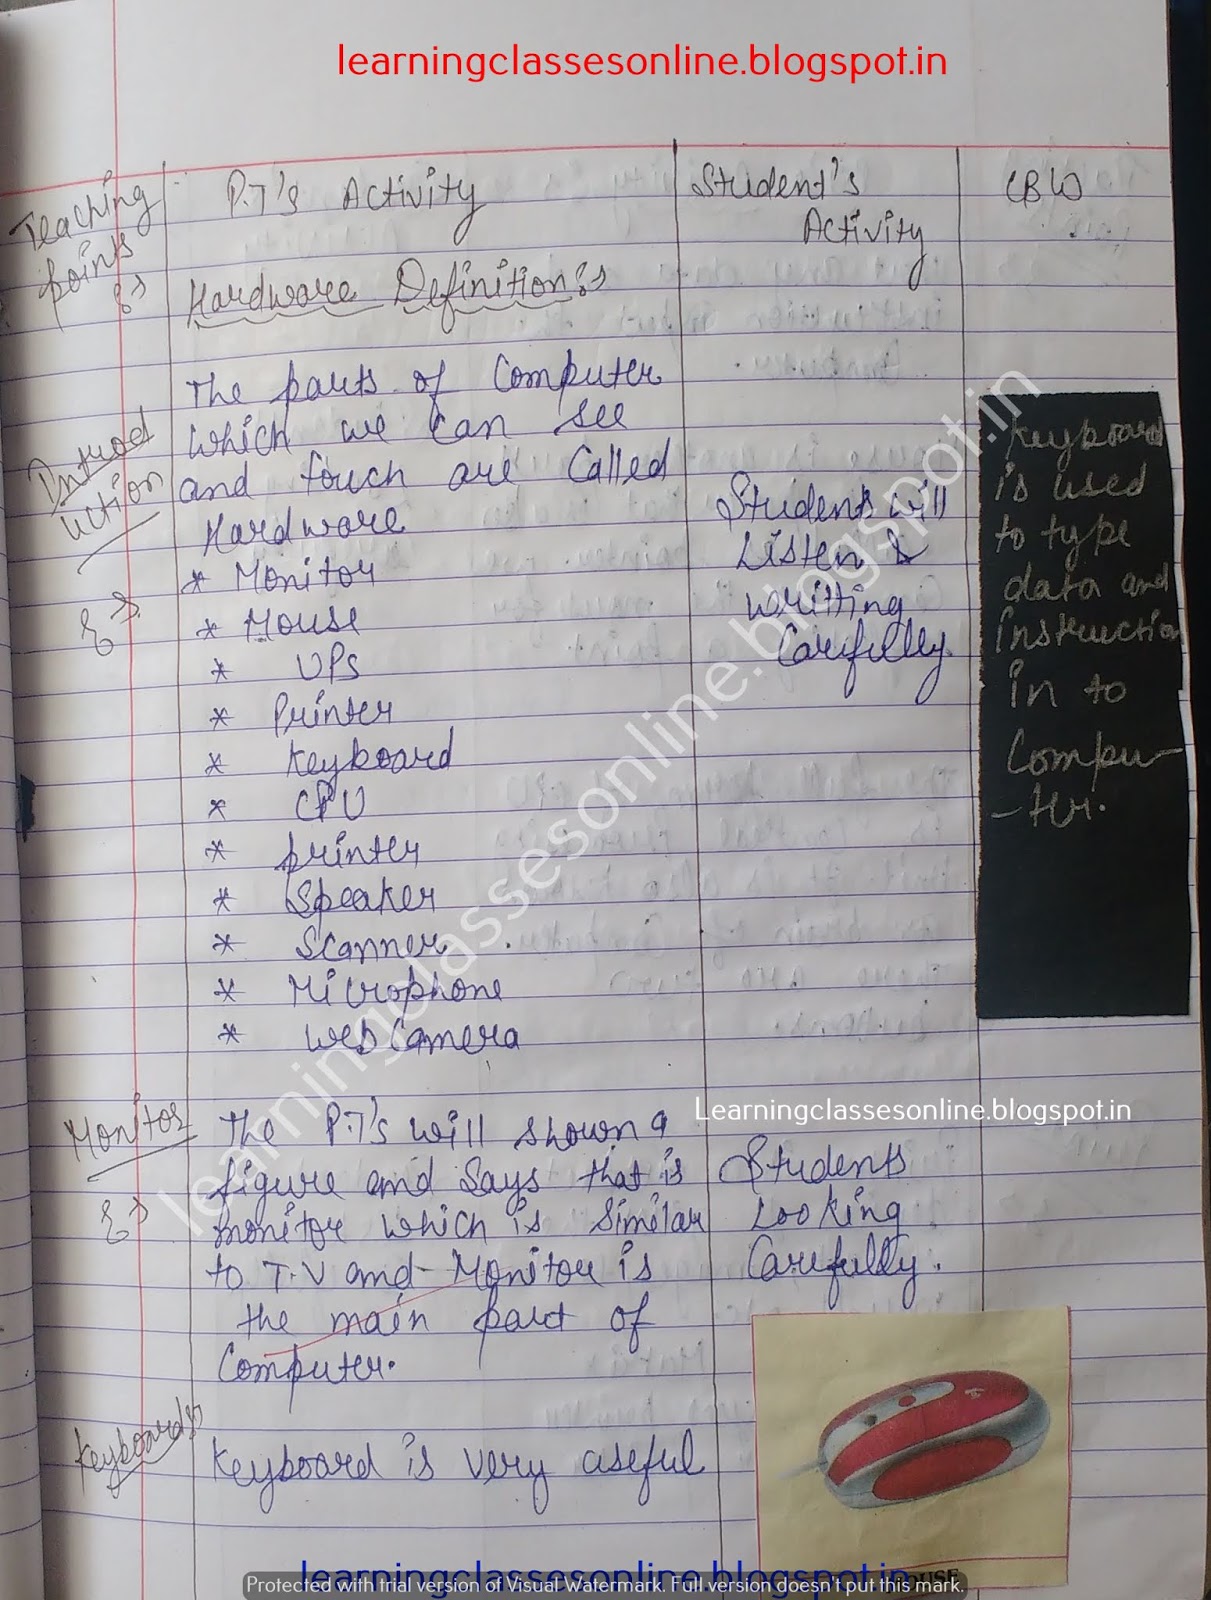 learningclassesonline.blogspot.in
Teaching
points
P.T's Activity
Student's
Activity
CBW
Hardware Definition:
Introd
uction
The parts of Computer
which we can see
and touch are Called
Hardware
* Monitor
* Mouse
* UPS
* Printer
* Keyboard
* CPU
* printer
* Speaker
* Scanner
* Microphone
* Web Camera
Students will
Listen &
writting
Carefully.
Keyboard
is used
to type
data and
instruction
in to
Compu-
-ter.
learningclassesonline.blogspot.in
Learningclassesonline.blogspot.in
Monitor
The P.T's will shown a
figure and Says that is
monitor which is Similar
to T.V and Monitor is
the main part of
Computer.
Students
Looking
Carefully.
Keyboard
Keyboard is very useful
learningclassesonline.blogspot.in
Protected with trial version of Visual Watermark. Full version doesn't put this mark.